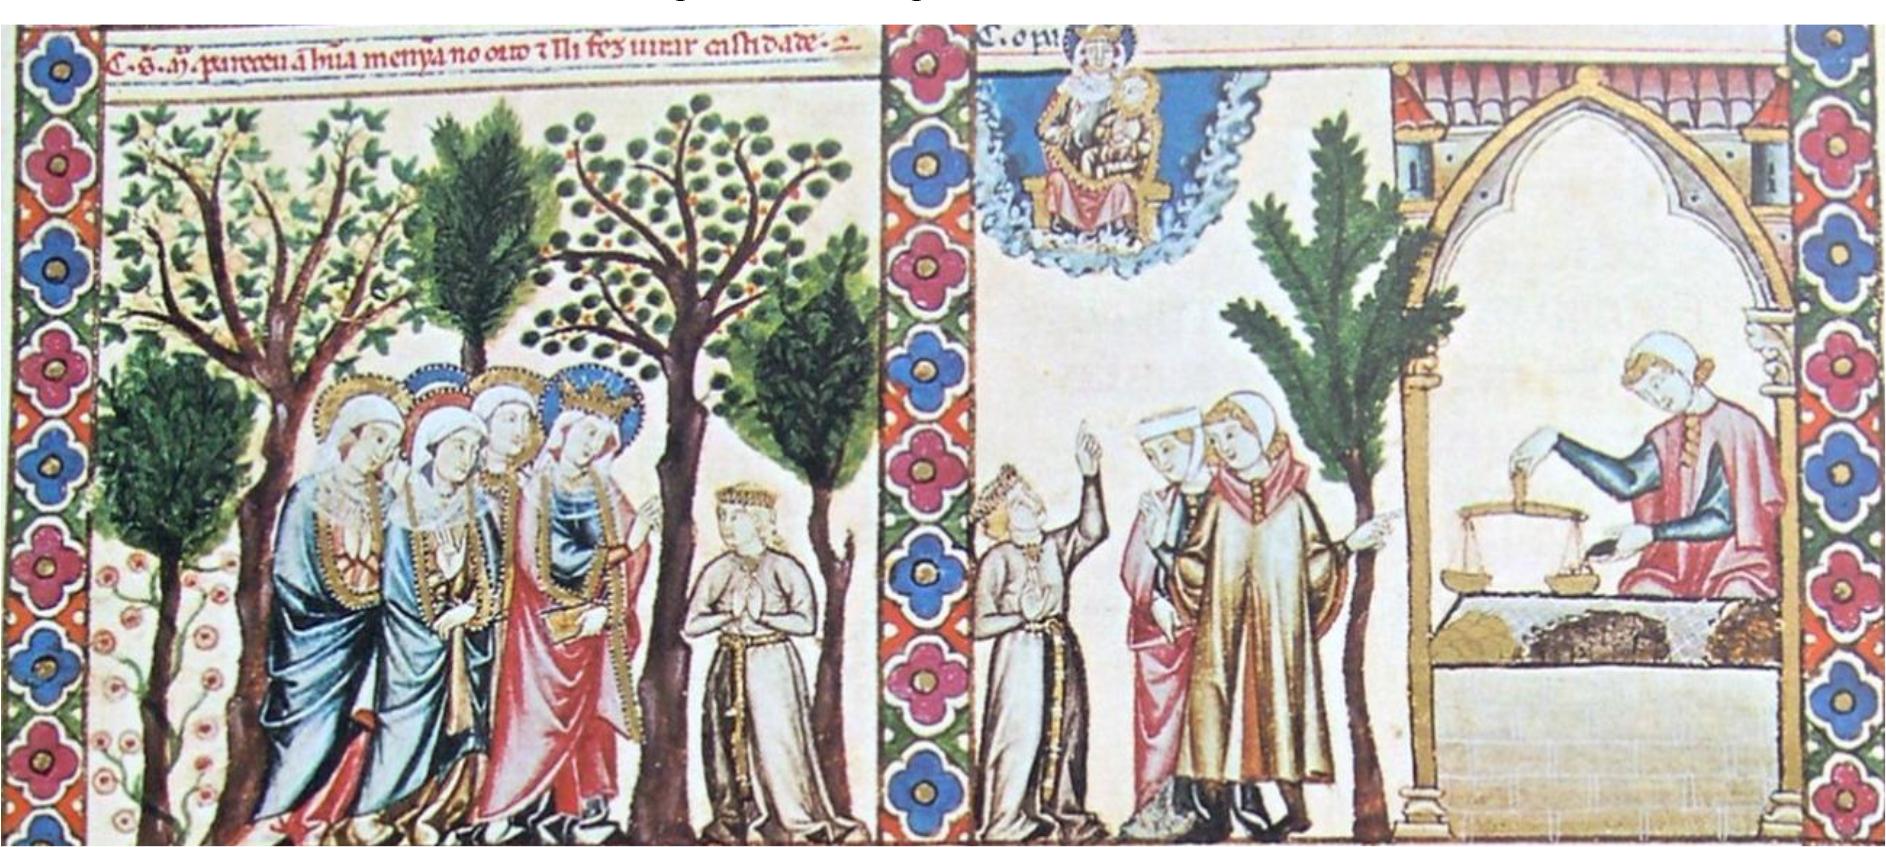 C. s̃. m̃. pareceu a hũa menỹa no orto ⁊ lli fez iurar castidade.
C. o